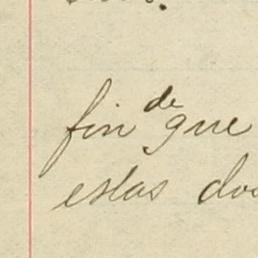 fin de que
estas